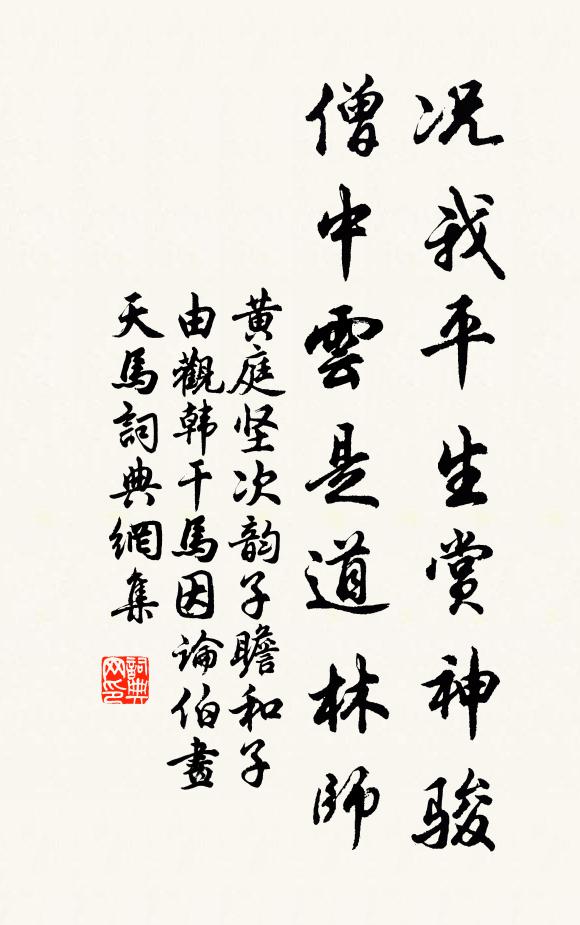 况我平生赏神骏
僧中雲是道林師
黄庭坚次韵子瞻和子
由觀韩干馬因論伯畫
天馬詞典網集
詞典网印